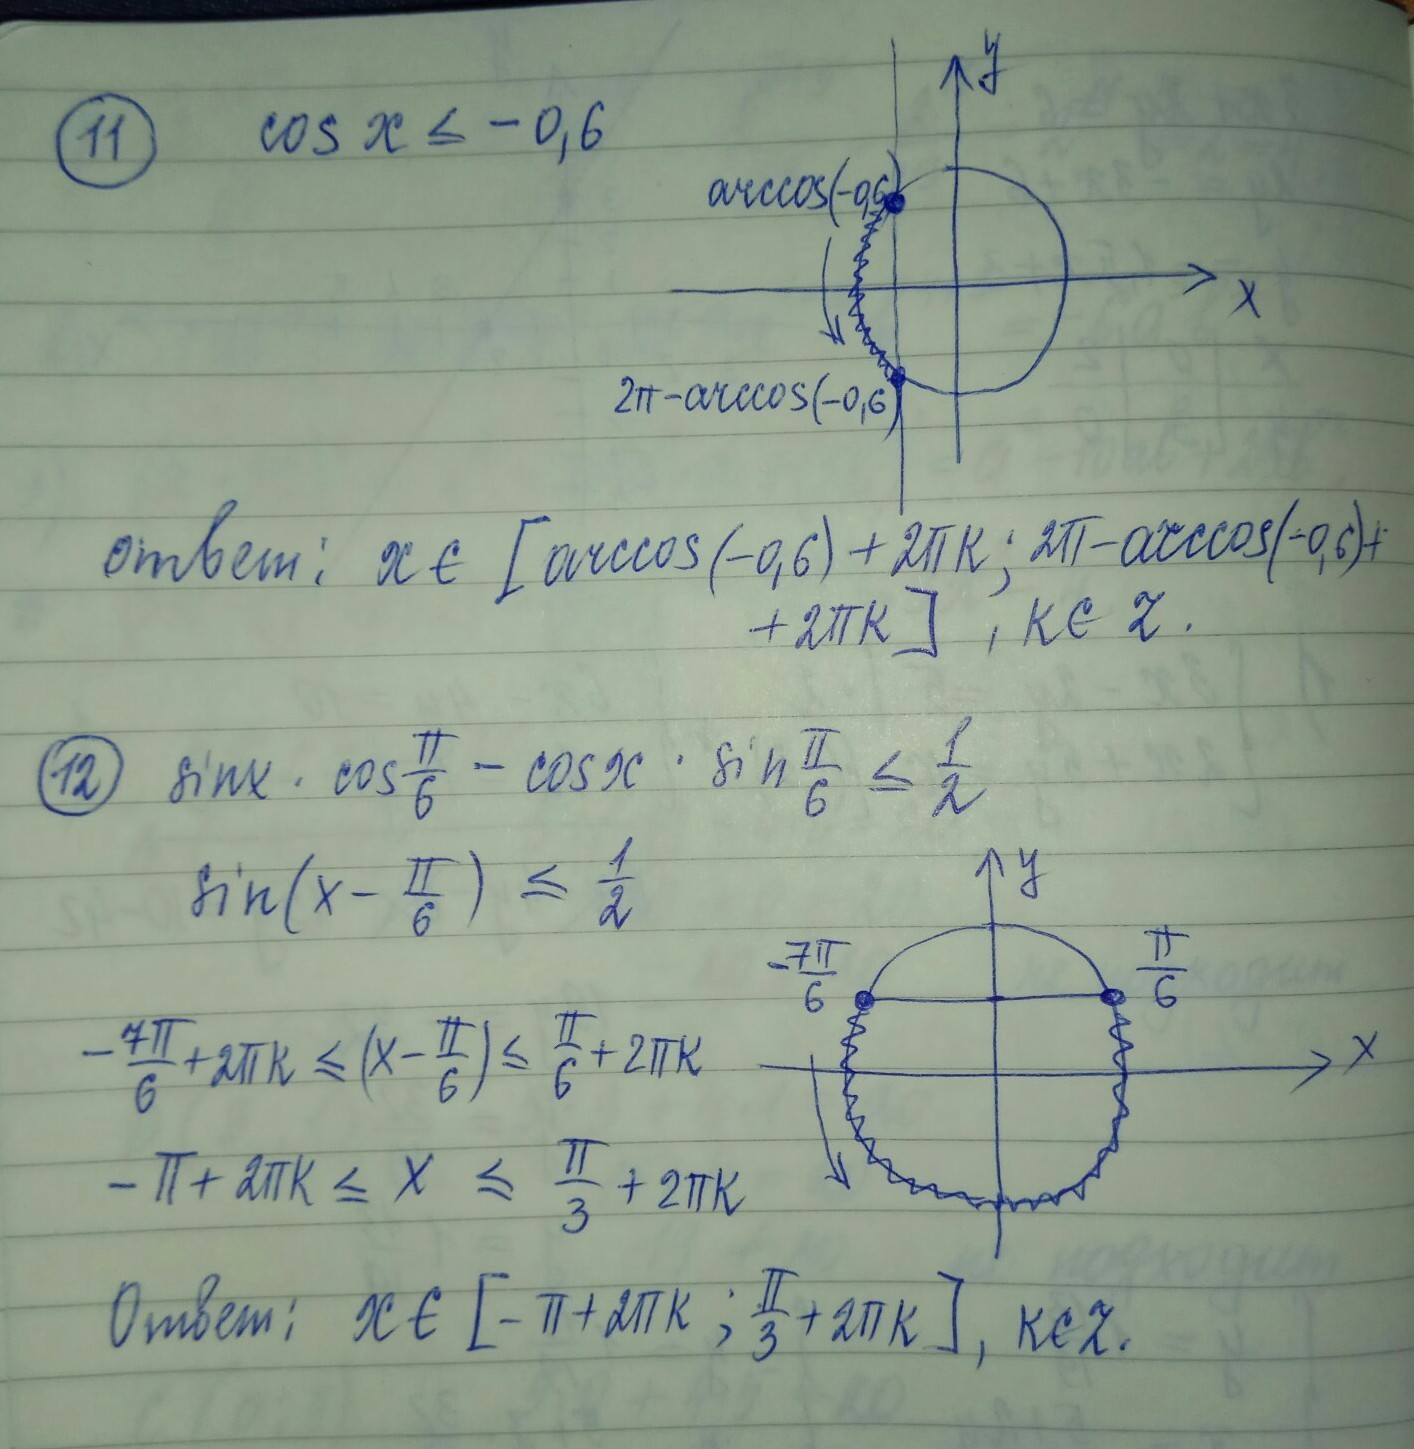 11 cos x ≤ -0,6
y
arccos(-0,6)
x
2π-arccos(-0,6)
ответ: x ∈ [arccos(-0,6)+2πk; 2π-arccos(-0,6)+
+2πk], k∈Z.
12 sinx · cos π/6 - cosx · sin π/6 ≤ 1/2
sin(x - π/6) ≤ 1/2
y
-7π/6 π/6
-7π/6+2πk ≤ (x-π/6) ≤ π/6+2πk
x
-π+2πk ≤ x ≤ π/3 +2πk
Ответ: x∈[-π+2πk ; π/3+2πk], k∈Z.